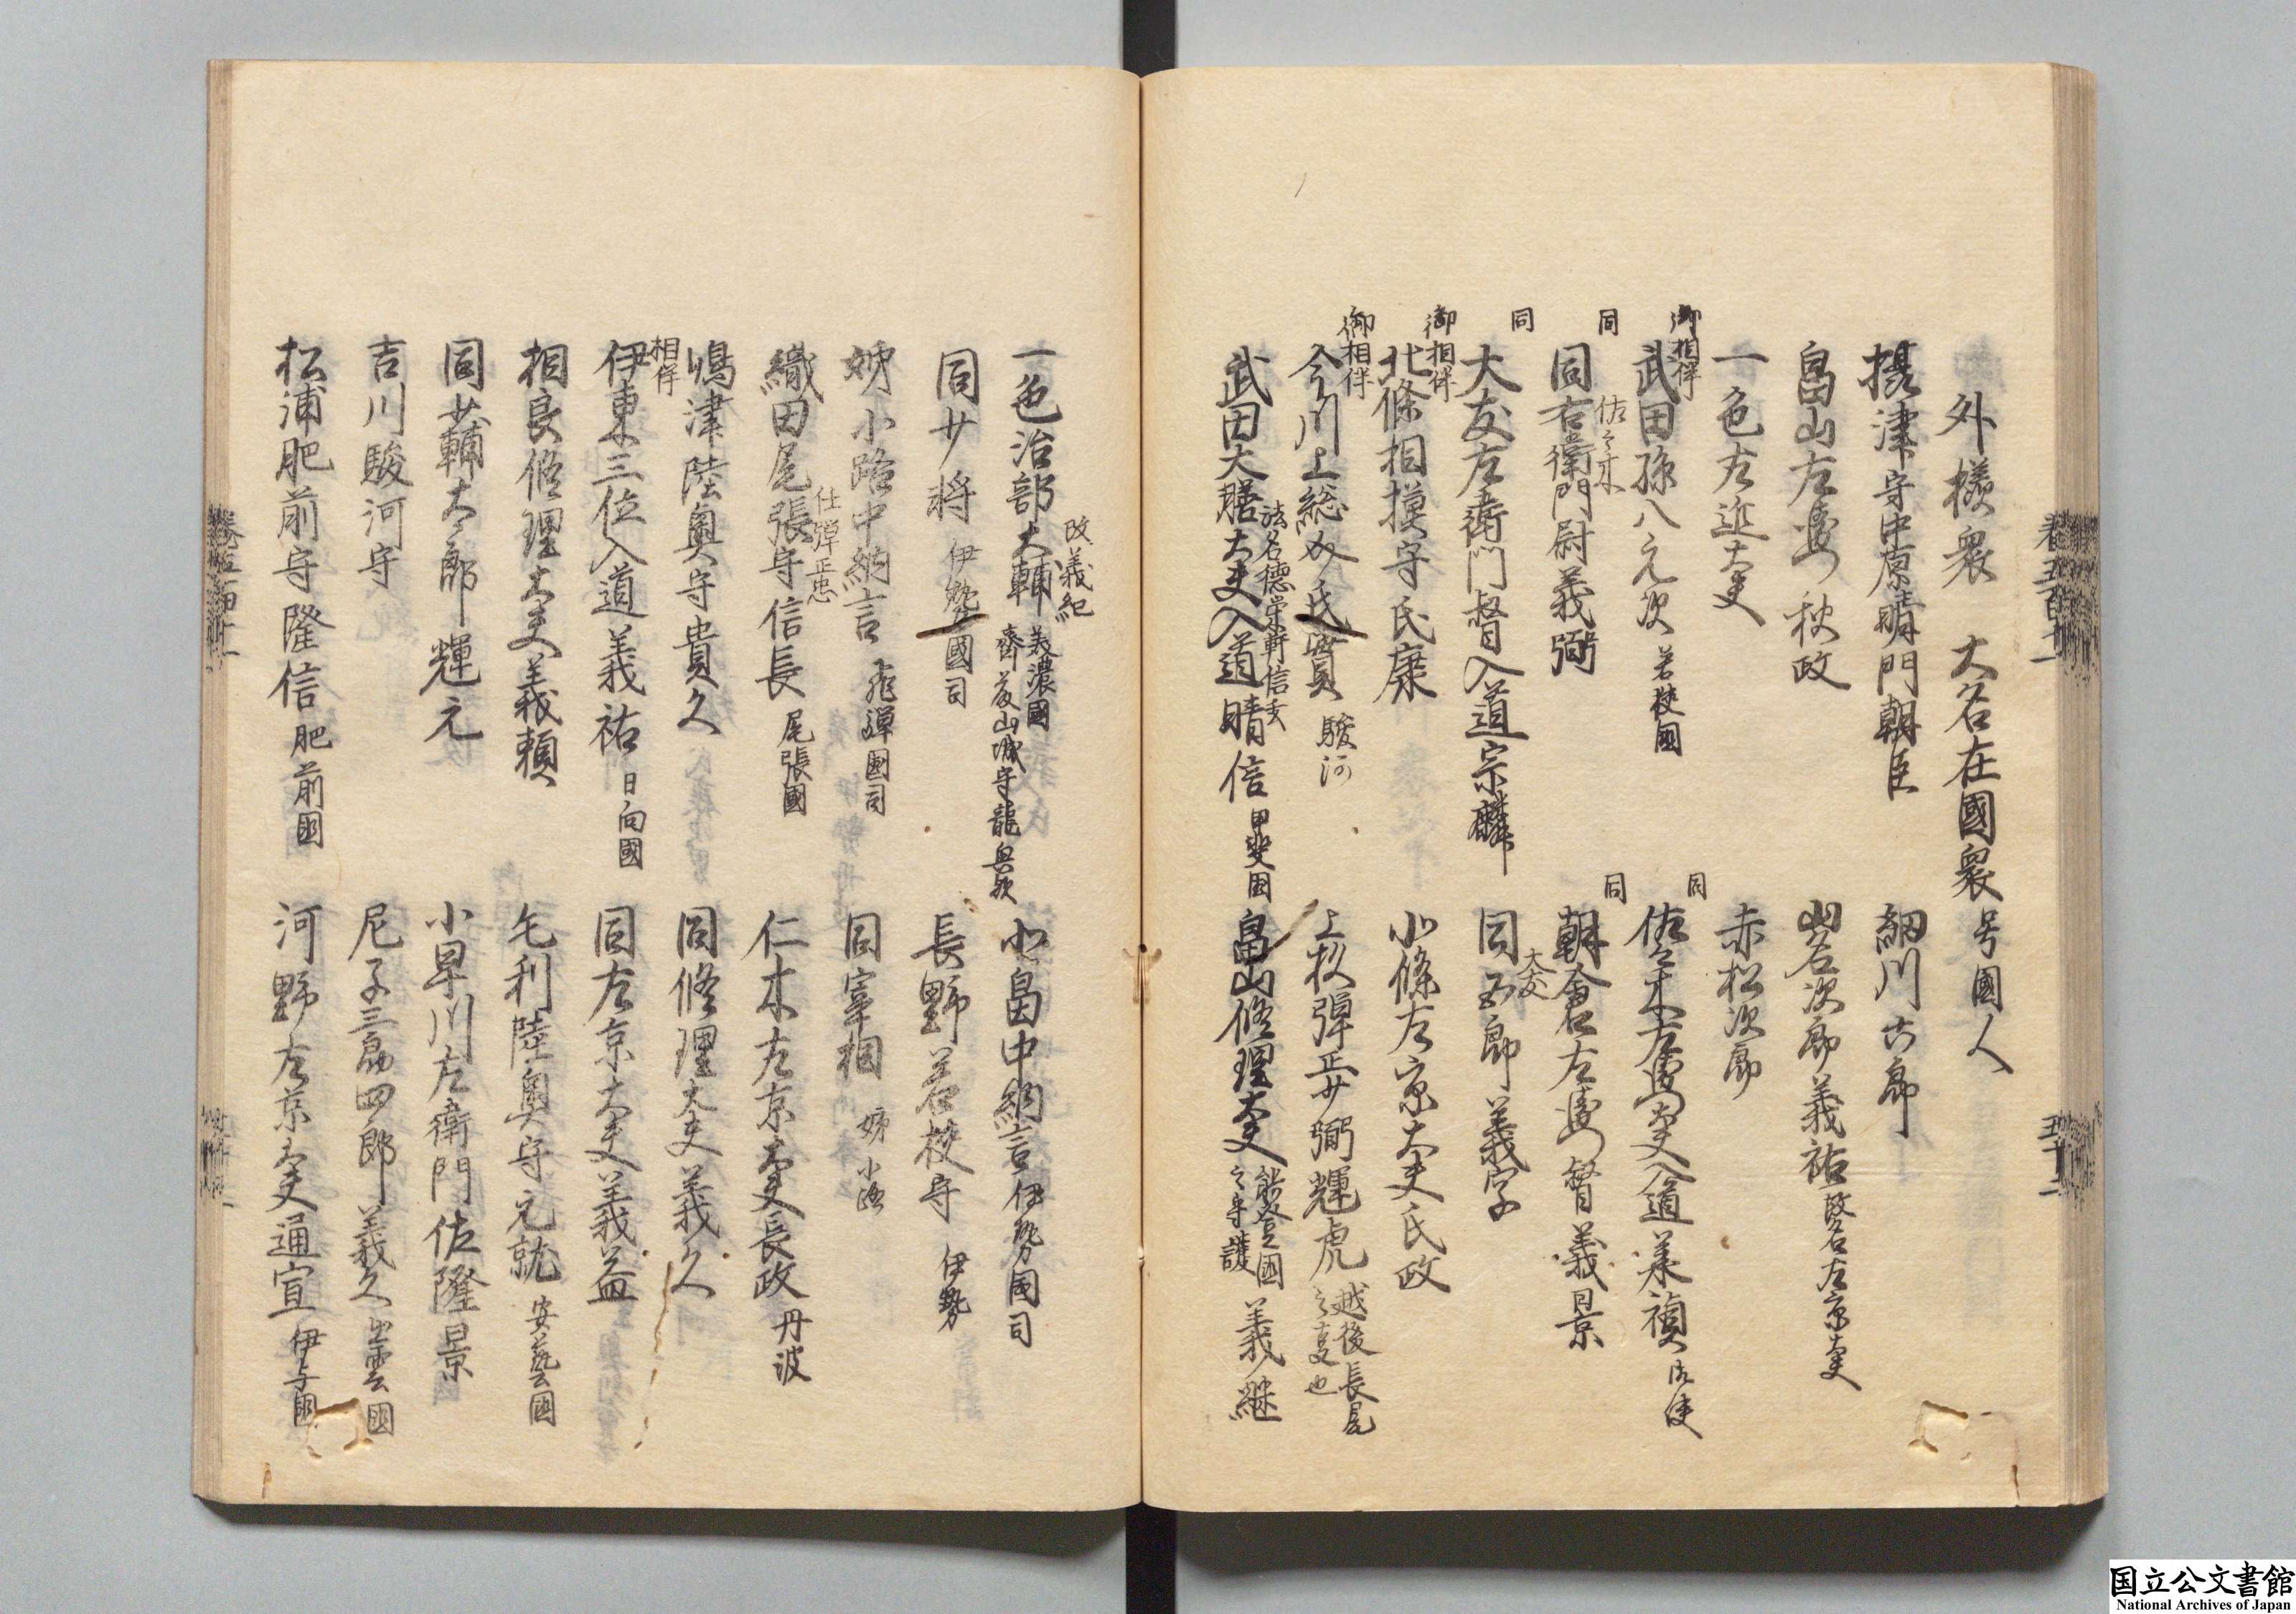 外樣衆　大名在國衆号國人
攝津守中原晴門朝臣　細川六郎
畠山左衛門　秋政　山名次郎義祐 改名左京大夫
一色左近大夫　赤松次郎
御相伴
武田孫八元次 若狹國　同　佐々木左京大夫入道義禎
同　佐々木
同右衛門尉義弼　同　朝倉左衛門督義景
同
大友左衛門督入道宗麟　大友
同五郎　義字
御相伴
北條相摸守氏康　北條左京大夫氏政
御相伴
今川上総介氏眞 駿河　上杉彈正少弼輝虎 越後長尾之事也
法名德栄軒信玄
武田大膳大夫入道晴信 甲斐国　畠山修理大夫 能登國之守護 義継
改義紀
一色治部大輔 美濃國 齋藤山城守龍興欤　北畠中納言 伊勢國司
同少將 伊勢國司　長野若狹守 伊勢
姉小路中納言 飛驒國司　同宰相 姉小路
仕彈正忠
織田尾張守信長 尾張國　仁木左京大夫長政 丹波
嶋津陸奥守貴久　同修理大夫義久
相伴
伊東三位入道義祐 日向國　同左京大夫義益
相良修理大夫義頼　毛利陸奥守元就 安藝國
同少輔太郎輝元　小早川左衛門佐隆景
吉川駿河守　尼子三郎四郎義久 出雲國
松浦肥前守隆信 肥前国　河野左京大夫通宣 伊与國
国立公文書館
National Archives of Japan